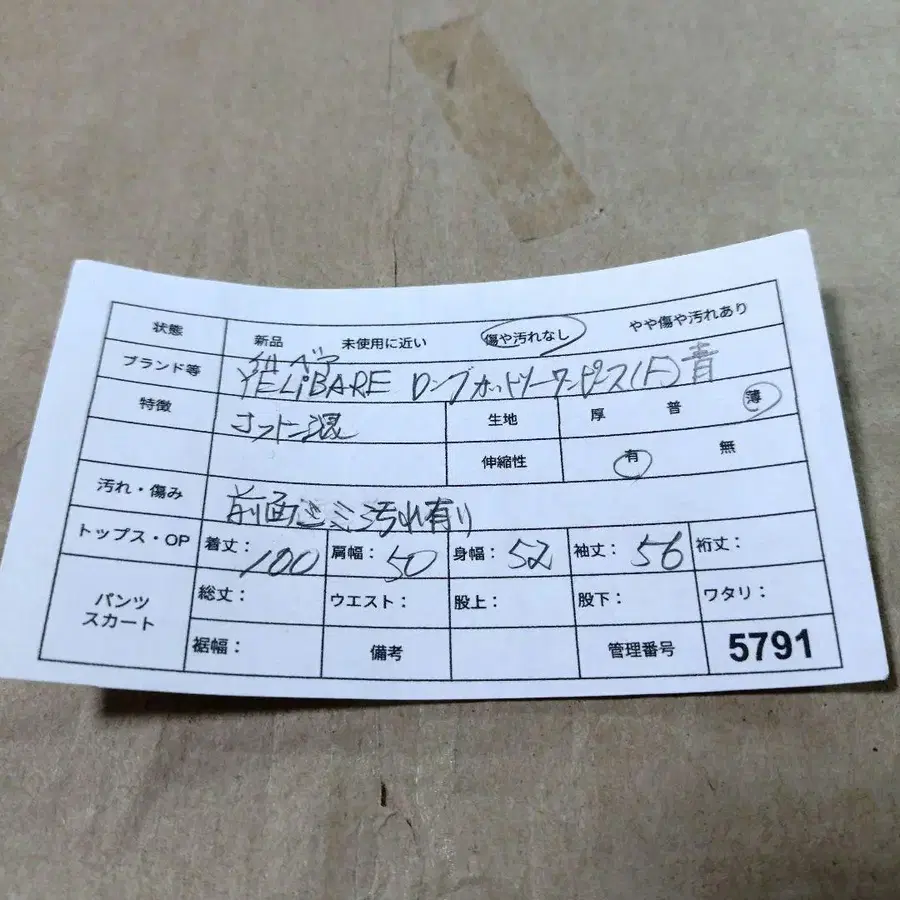 状態 新品 未使用に近い 傷や汚れなし やや傷や汚れあり
イエリベア
ブランド等 YELiBARE ロングカットソーワンピース(F)青
特徴 コットン混 生地 厚 普 薄
伸縮性 有 無
汚れ・傷み 前面 汚れ有り
トップス・OP 着丈: 100 肩幅: 50 身幅: 52 袖丈: 56 裄丈:
パンツ スカート 総丈: ウエスト: 股上: 股下: ワタリ:
裾幅: 備考 管理番号 5791